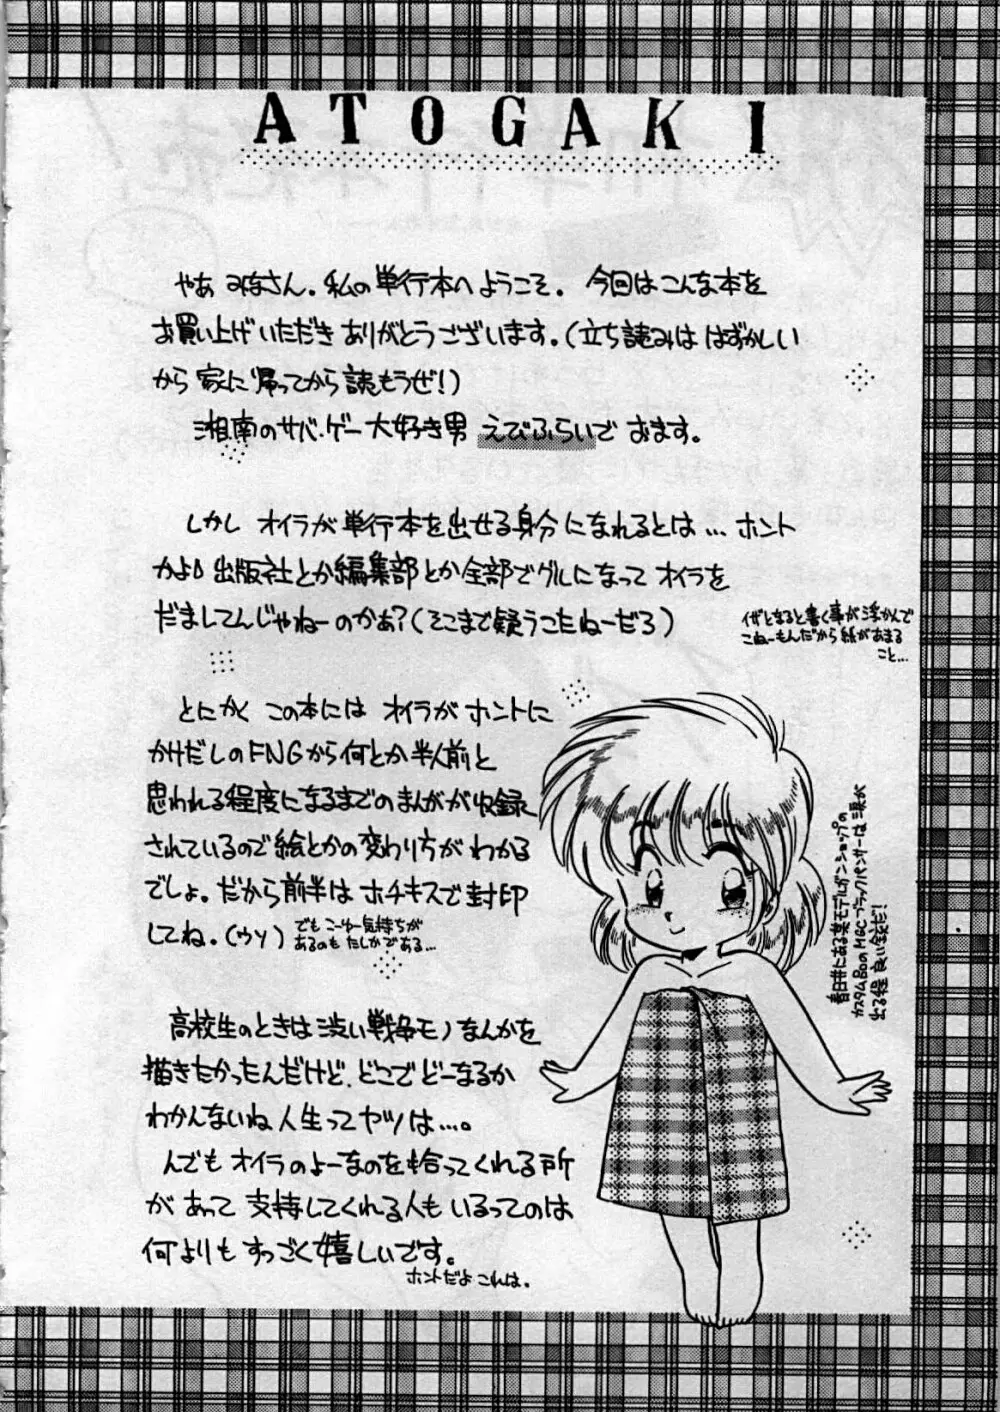 ATOGAKI
やあ みなさん。私の単行本へようこそ。今回はこんな本を
お買い上げいただきありがとうございます。(立ち読みは はずかしい
から 家に帰ってから読もうぜ!)
湘南のサバ・ゲー大好き男 えびふらいでおます。
しかし オイラが単行本を出せる身分になれるとは… ホント
かよ 出版社とか編集部とか全部でグルになって オイラを
だましてんじゃねーのかぁ?(そこまで疑うこたねーだろ)
イザとなると書く事が浮かんで
こねーもんだから紙があまる
こと…
とにかく この本には オイラが ホントに
かけだしのFNGから何とか半人前と
思われる程度になるまでのまんがが収録
されているので絵とかの変わり方が わかる
でしょ。だから前半は ホチキスで封印
してね。(ウソ)
でも こーゆー気持ちが
あるのも たしかである…
春日井にある某モデルガンショップの
カスタムBoのMGCブラックパンサーは 涙が
出る程 良い銃だ!
高校生のときは渋い戦争モノなんかを
描きたかったんだけど、どこでどーなるか
わかんないね 人生ってヤツは…。
んでも オイラのよーなのを拾ってくれる所
が あって 支持してくれる人も いるってのは
何よりも すっごく嬉しいです。
ホントだよ これは。